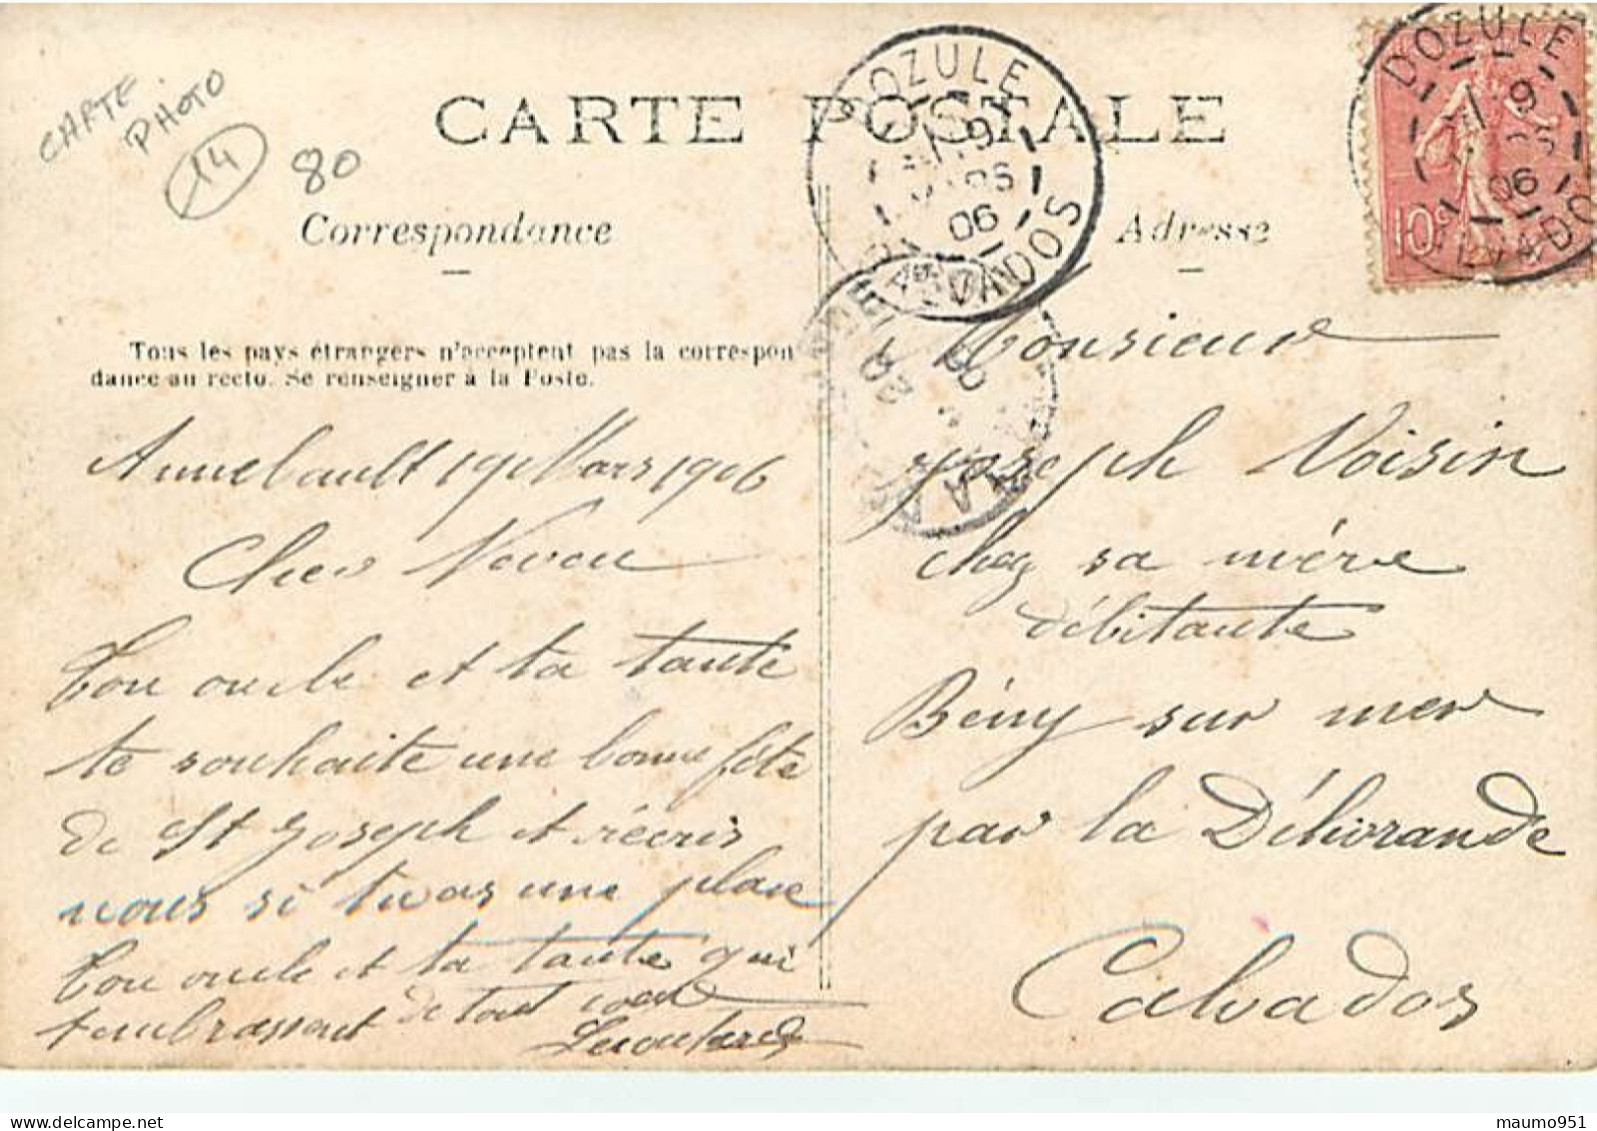 CARTE
PHOTO
14
80
CARTE POSTALE
Correspondance
Adresse
Tous les pays étrangers n'acceptent pas la correspon
dance au recto. Se renseigner à la Poste.
DOZULE
19
MARS
06
CALVADOS
DOZULE
19
06
CALVADOS
10c
Annebault 19 Mars 1906
Cher Neveu
Ton oncle et ta tante
te souhaite une bonne fête
de St Joseph et récris
nous si tu as une place
Ton oncle et ta tante qui
t'embrassent de tout coeur
Monsieur
Joseph Voisin
chez sa mère
débitante
Bény sur mer
par la Délivrande
Calvados
maumo951